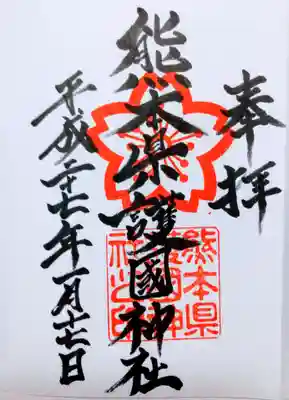 奉拝
熊本県護國神社
平成二十七年一月十七日
熊本県
護國神
社之印